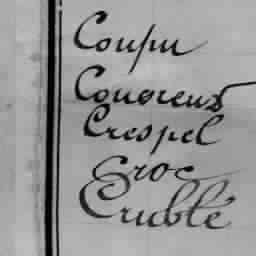 Coupu
Couvreux
Crespel
Croc
Crublé